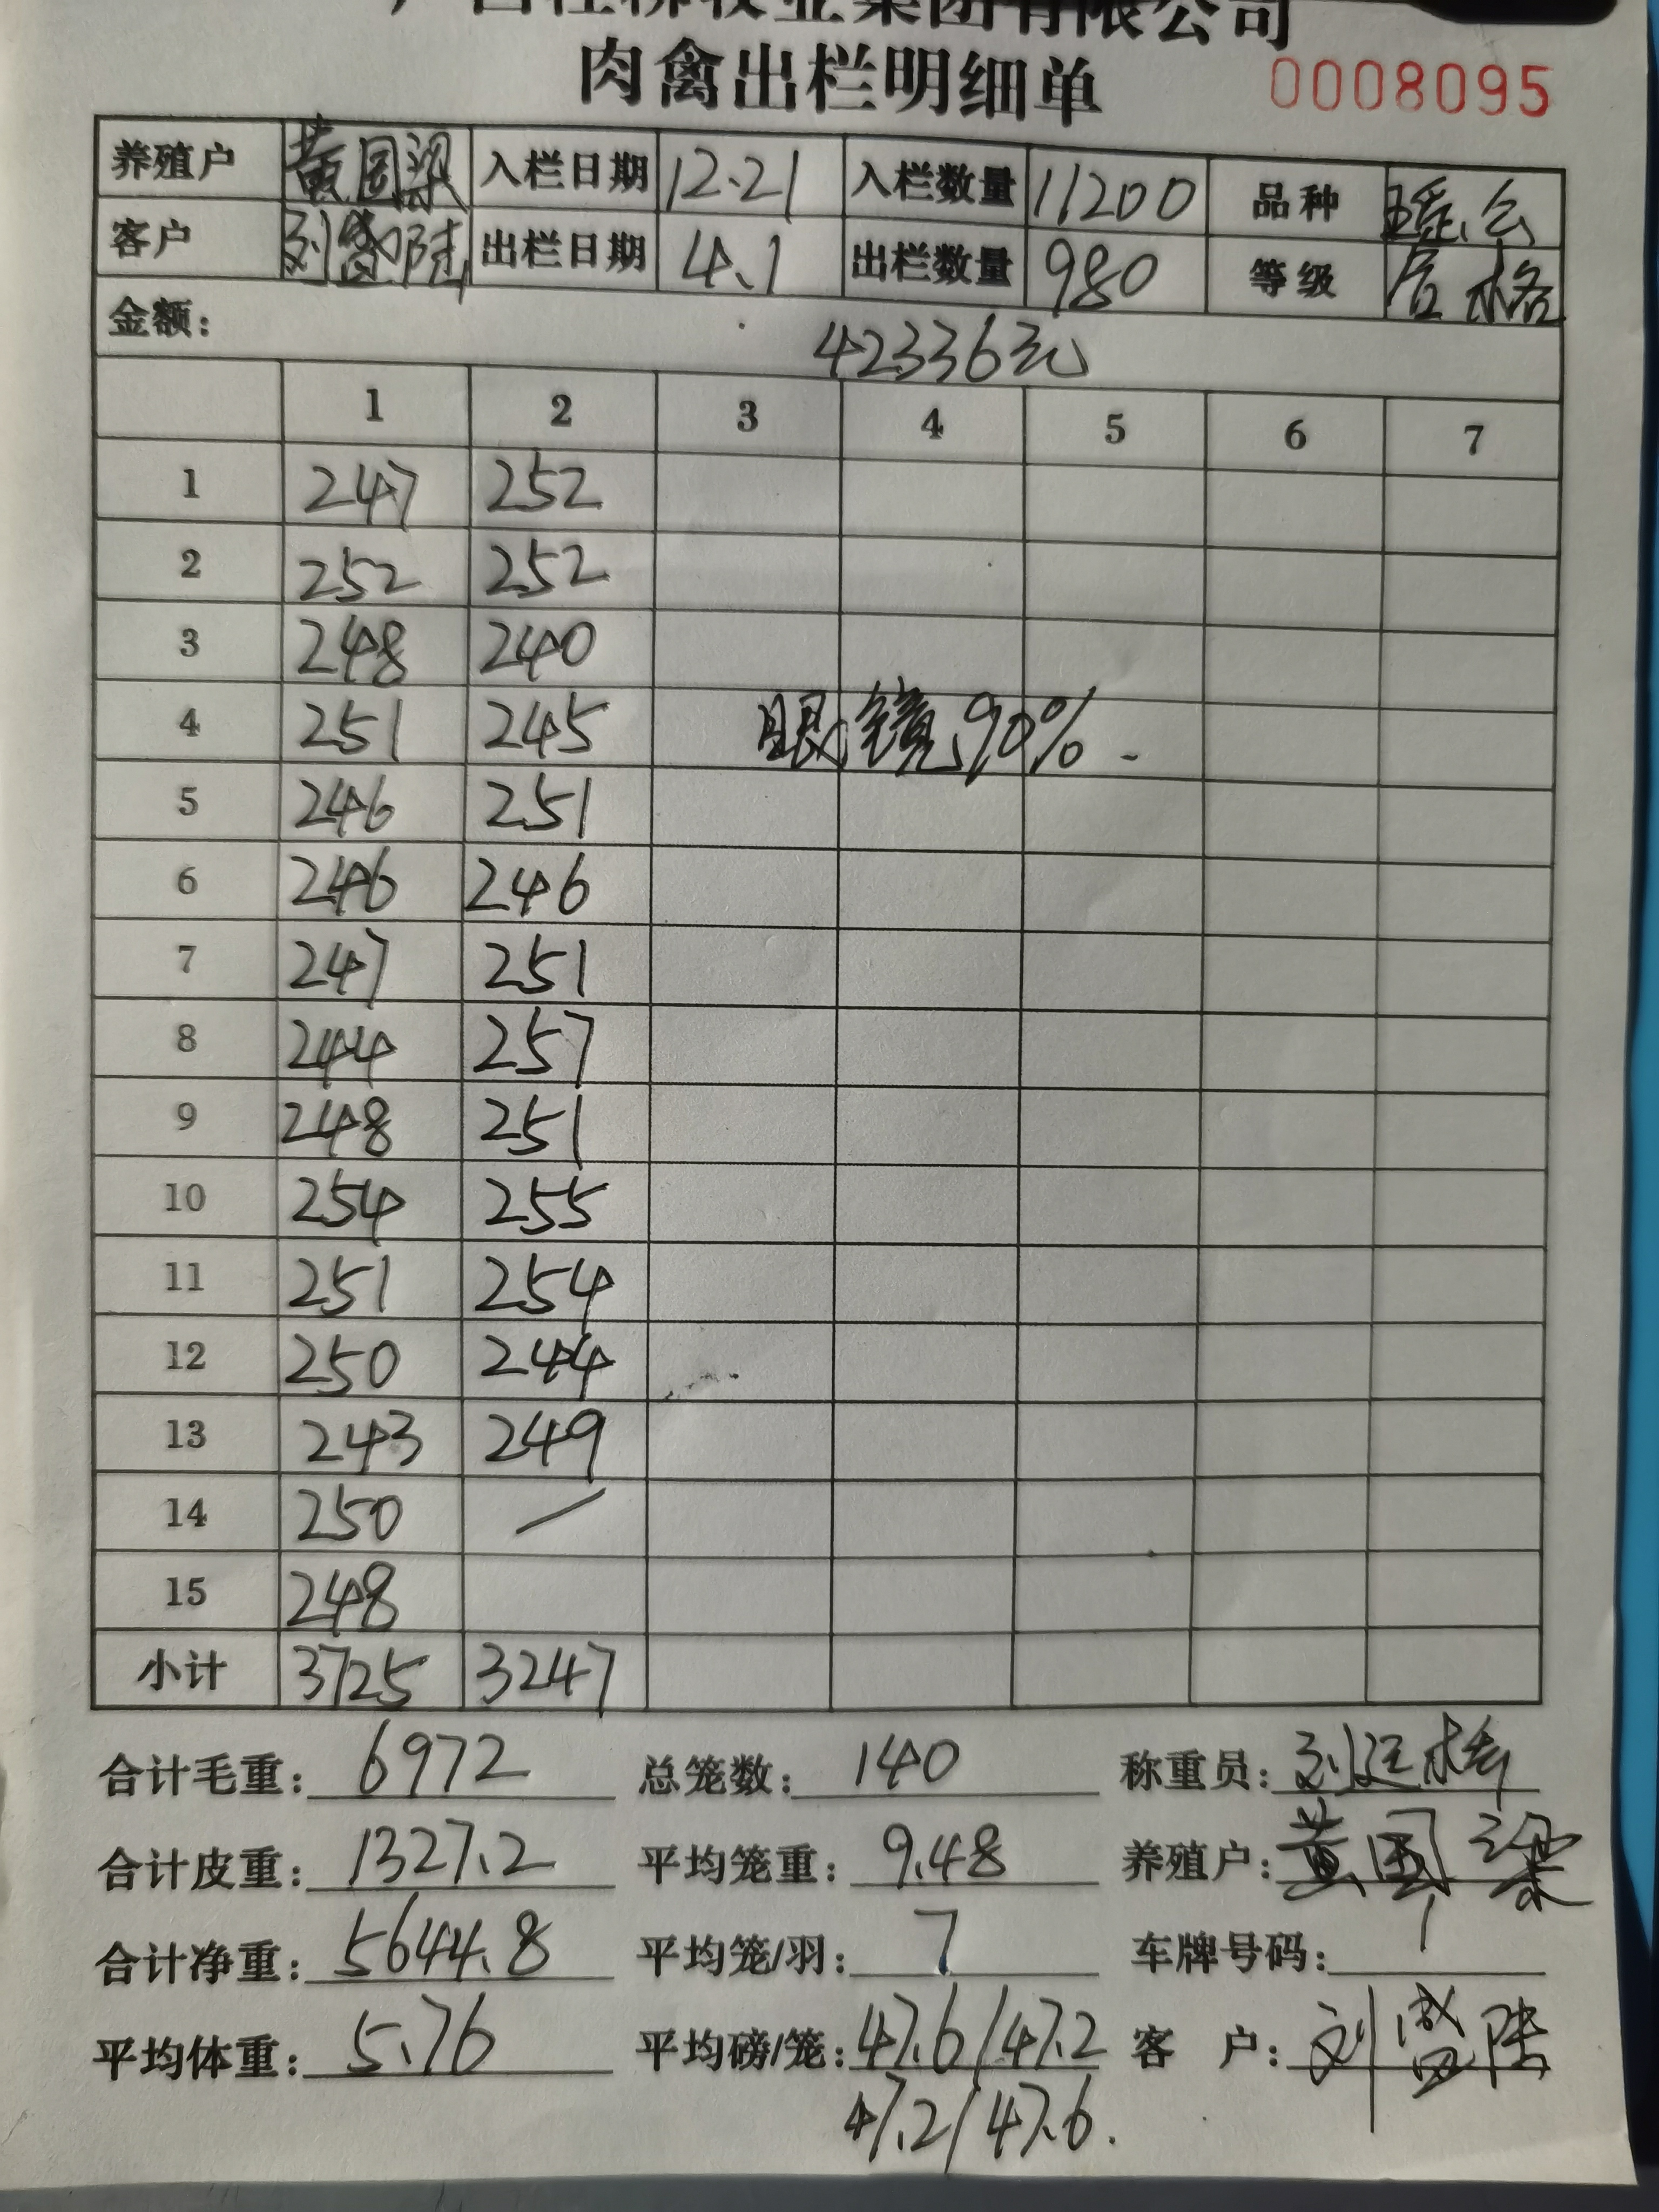 广西桂柳牧业集团有限公司
肉禽出栏明细单 0008095
养殖户 黄国梁 入栏日期 12.21 入栏数量 11200 品种 瑶么
客户 刘盛陆 出栏日期 4.1 出栏数量 980 等级 合格
金额: 42336元
1 2 3 4 5 6 7
1 247 252
2 252 252
3 248 240
4 251 245 眼镜90%
5 246 251
6 246 246
7 247 251
8 244 257
9 248 251
10 254 255
11 251 254
12 250 244
13 243 249
14 250 /
15 248
小计 3725 3247
合计毛重: 6972 总笼数: 140 称重员: 刘廷
合计皮重: 1327.2 平均笼重: 9.48 养殖户: 黄国梁
合计净重: 5644.8 平均笼/羽: 7 车牌号码: /
平均体重: 5.76 平均磅/笼: 47.6/47.2 客 户: 刘盛陆
47.2/47.6.